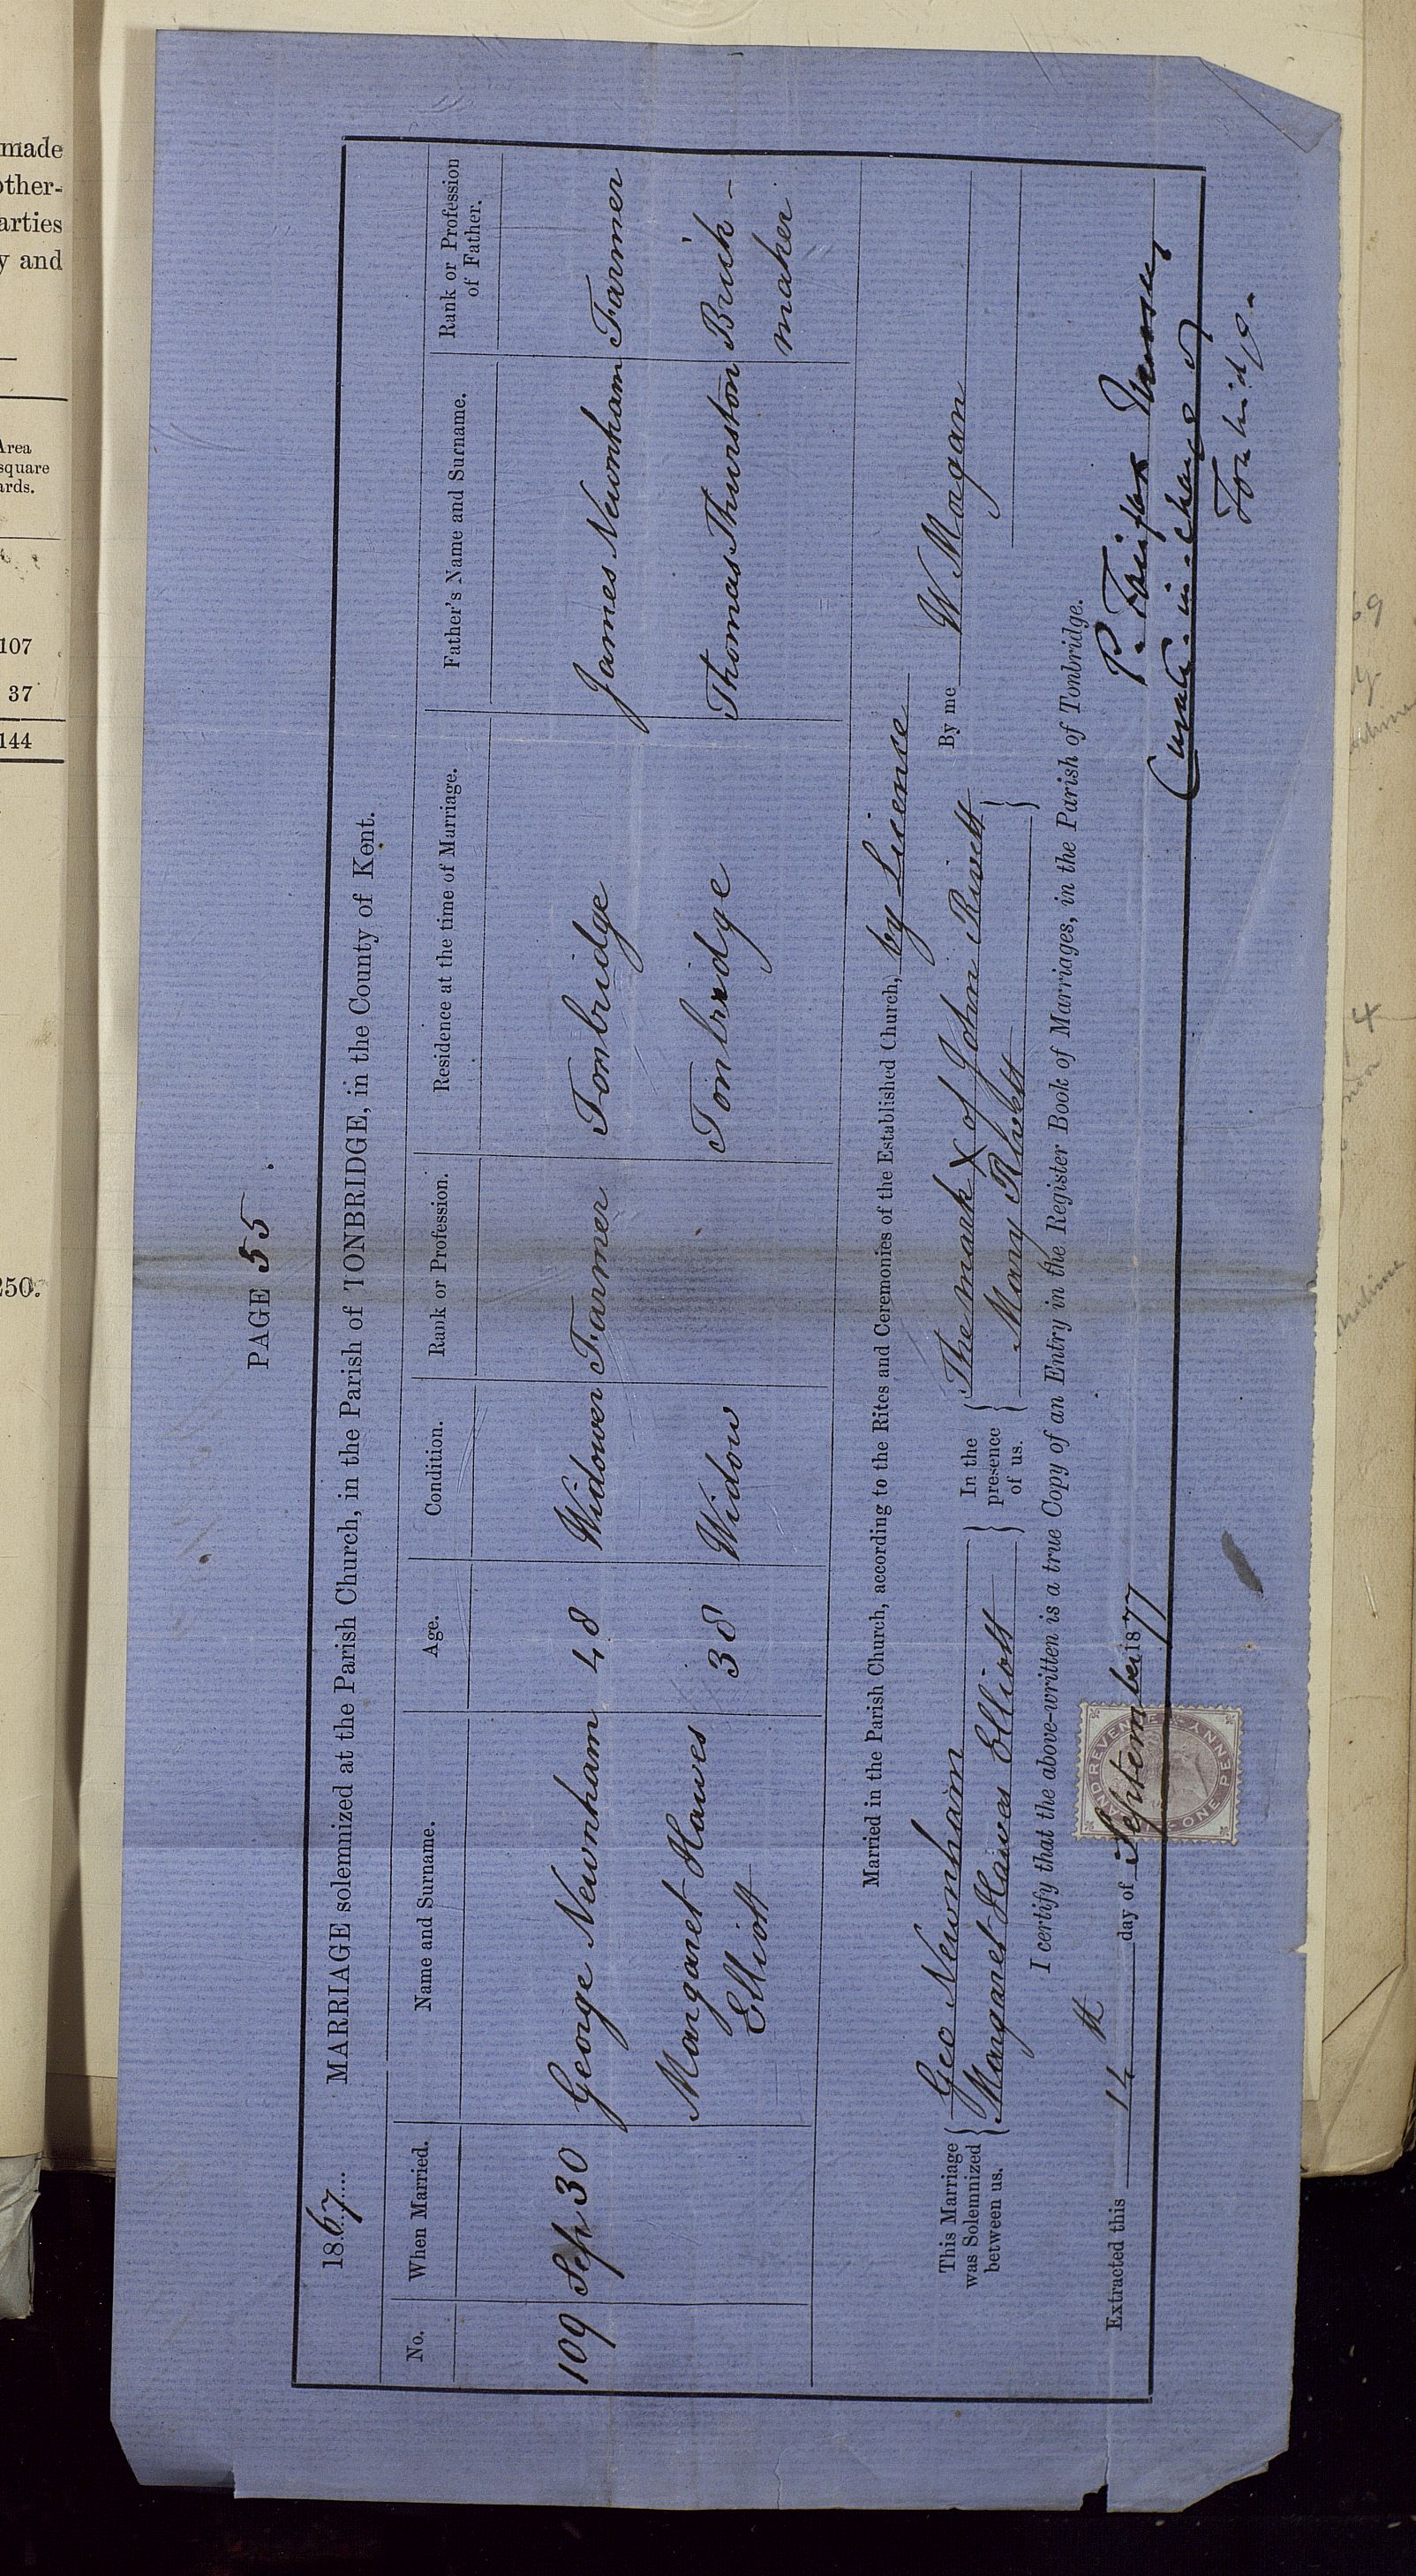 made
other-
arties
y and
Area
square
ards.
107
37
144
250.
PAGE 55
1867. MARRIAGE solemnized at the Parish Church, in the Parish of TONBRIDGE, in the County of Kent.
No. When Married. Name and Surname. Age. Condition. Rank or Profession. Residence at the time of Marriage. Father's Name and Surname. Rank or Profession of Father.
109 Sep 30 George Newnham 48 Widower Farmer Tonbridge James Newnham Farmer
Margaret Hawes 38 Widow Tonbridge Thomas Thurston Brick-
Elliott maker
Married in the Parish Church, according to the Rites and Ceremonies of the Established Church, by Licence
This Marriage was Solemnized between us. Geo Newnham In the presence of us. The mark X of John Rivett By me W Morgan
Margaret Hawes Elliott Mary
I certify that the above-written is a true Copy of an Entry in the Register Book of Marriages, in the Parish of Tonbridge.
Extracted this 14th day of September 1877 P. Fairfax
Curate-in-charge of
Tonbridge.
AND REVENUE
ONE PENNY